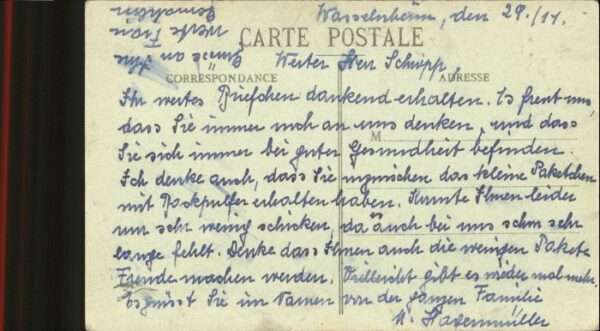 Wasselnheim, den 29./11.
CARTE POSTALE
Werter Herr Schrepp.
CORRESPONDANCE ADRESSE
Ihr wertes Briefchen dankend erhalten. Es freut uns,
dass Sie immer noch an uns denken, und dass
M
Sie sich immer bei guter Gesundheit befinden.
Ich denke auch, dass Sie inzwischen das kleine Paketchen
mit Backpulfer erhalten haben. Konnte Ihnen leider
nur sehr wenig schicken, da auch bei uns schon sehr
lange fehlt. Denke dass Ihnen auch die wenigen Pakete
Freude machen werden. Vielleicht gibt es wieder mal mehr.
Es grüsst Sie im Namen von der ganzen Familie
Grüße an Ihre
werte Frau